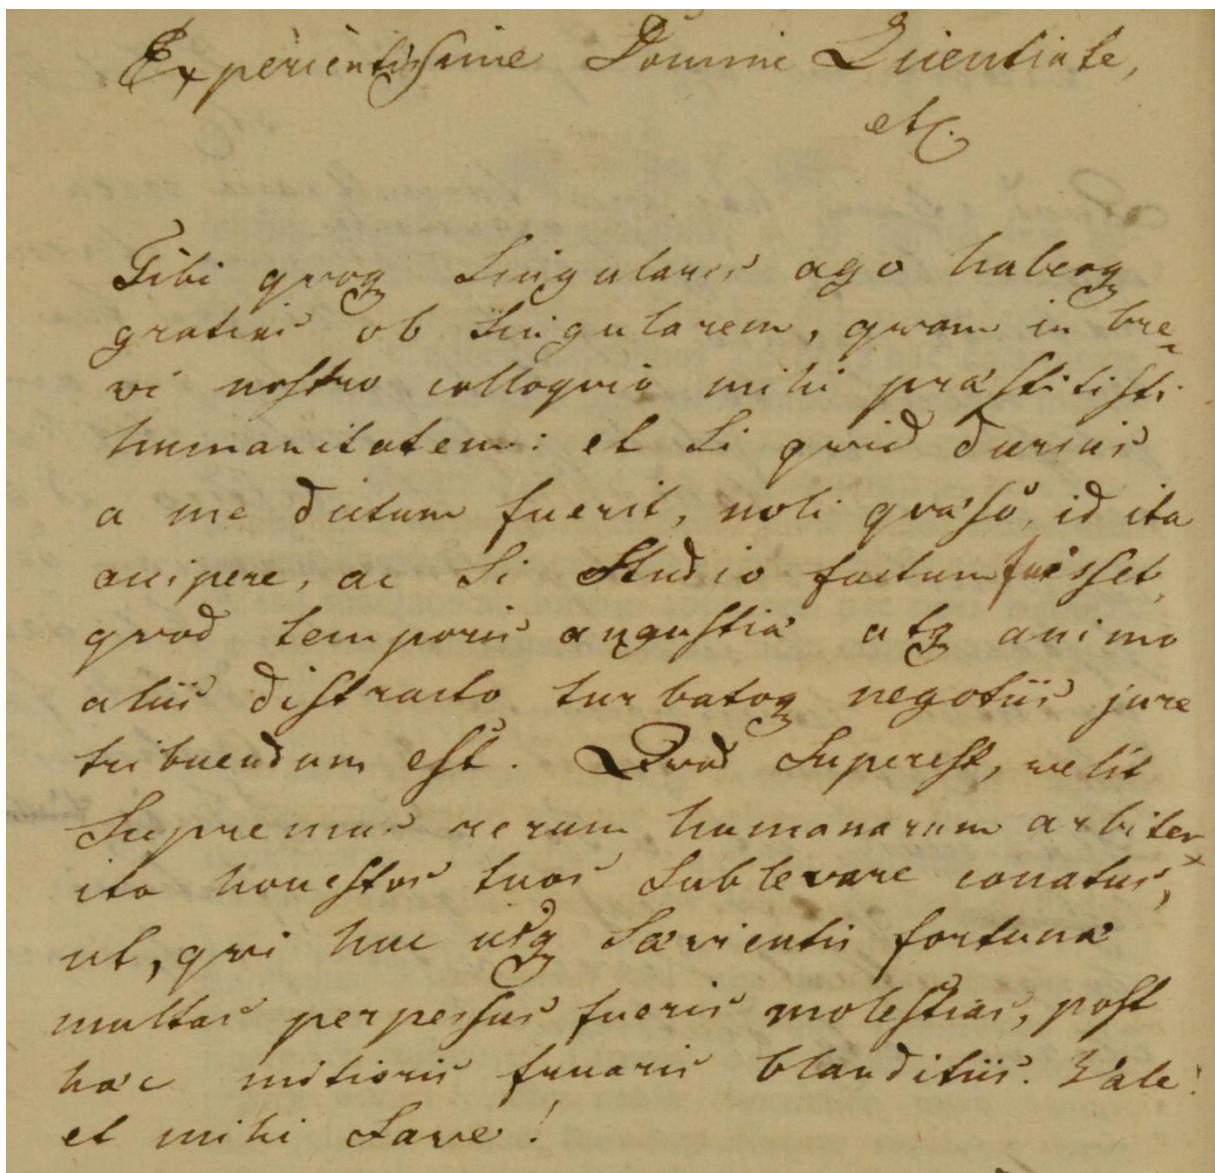 Experientissime Domine Licentiate,
etc.
Tibi qvoq singulares ago haberoq
gratias ob singularem, qvam in bre-
vi nostro colloqvio mihi præstitisti
humanitatem: et si qvid durius
a me dictum fuerit, noli qvæso, id ita
accipere, ac si studio factum fuisset,
qvod temporis angustiæ atq animo
aliis distracto turbatoq negotiis jure
tribuendum est. Qvod superest, velit
Supremus rerum humanarum arbiter
ita honestos tuos sublevare conatus,
ut, qvi huc usq sævientis fortunæ
multas perpessus fueris molestias, post
hac mitioris fruaris blanditiis. Vale!
et mihi fave!